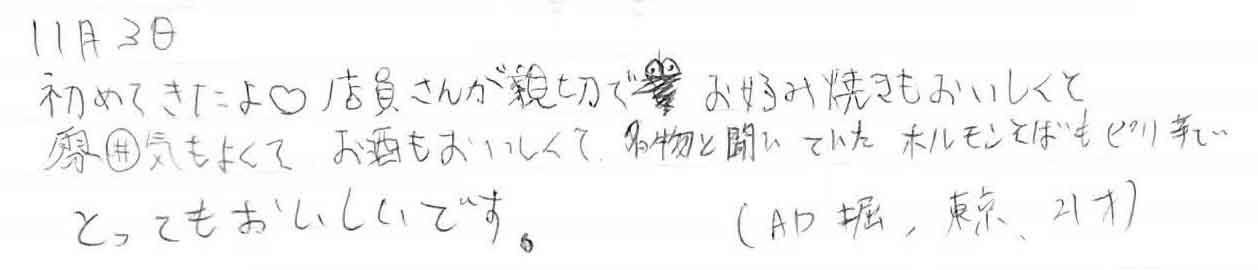 11月3日
初めてきたよ♡ 店員さんが親切で お好み焼きもおいしくと
雰囲気もよくて お酒もおいしくて、名物と聞いていた ホルモンそばもピリ辛で
とってもおいしいです。 (AD 堀, 東京、21才)